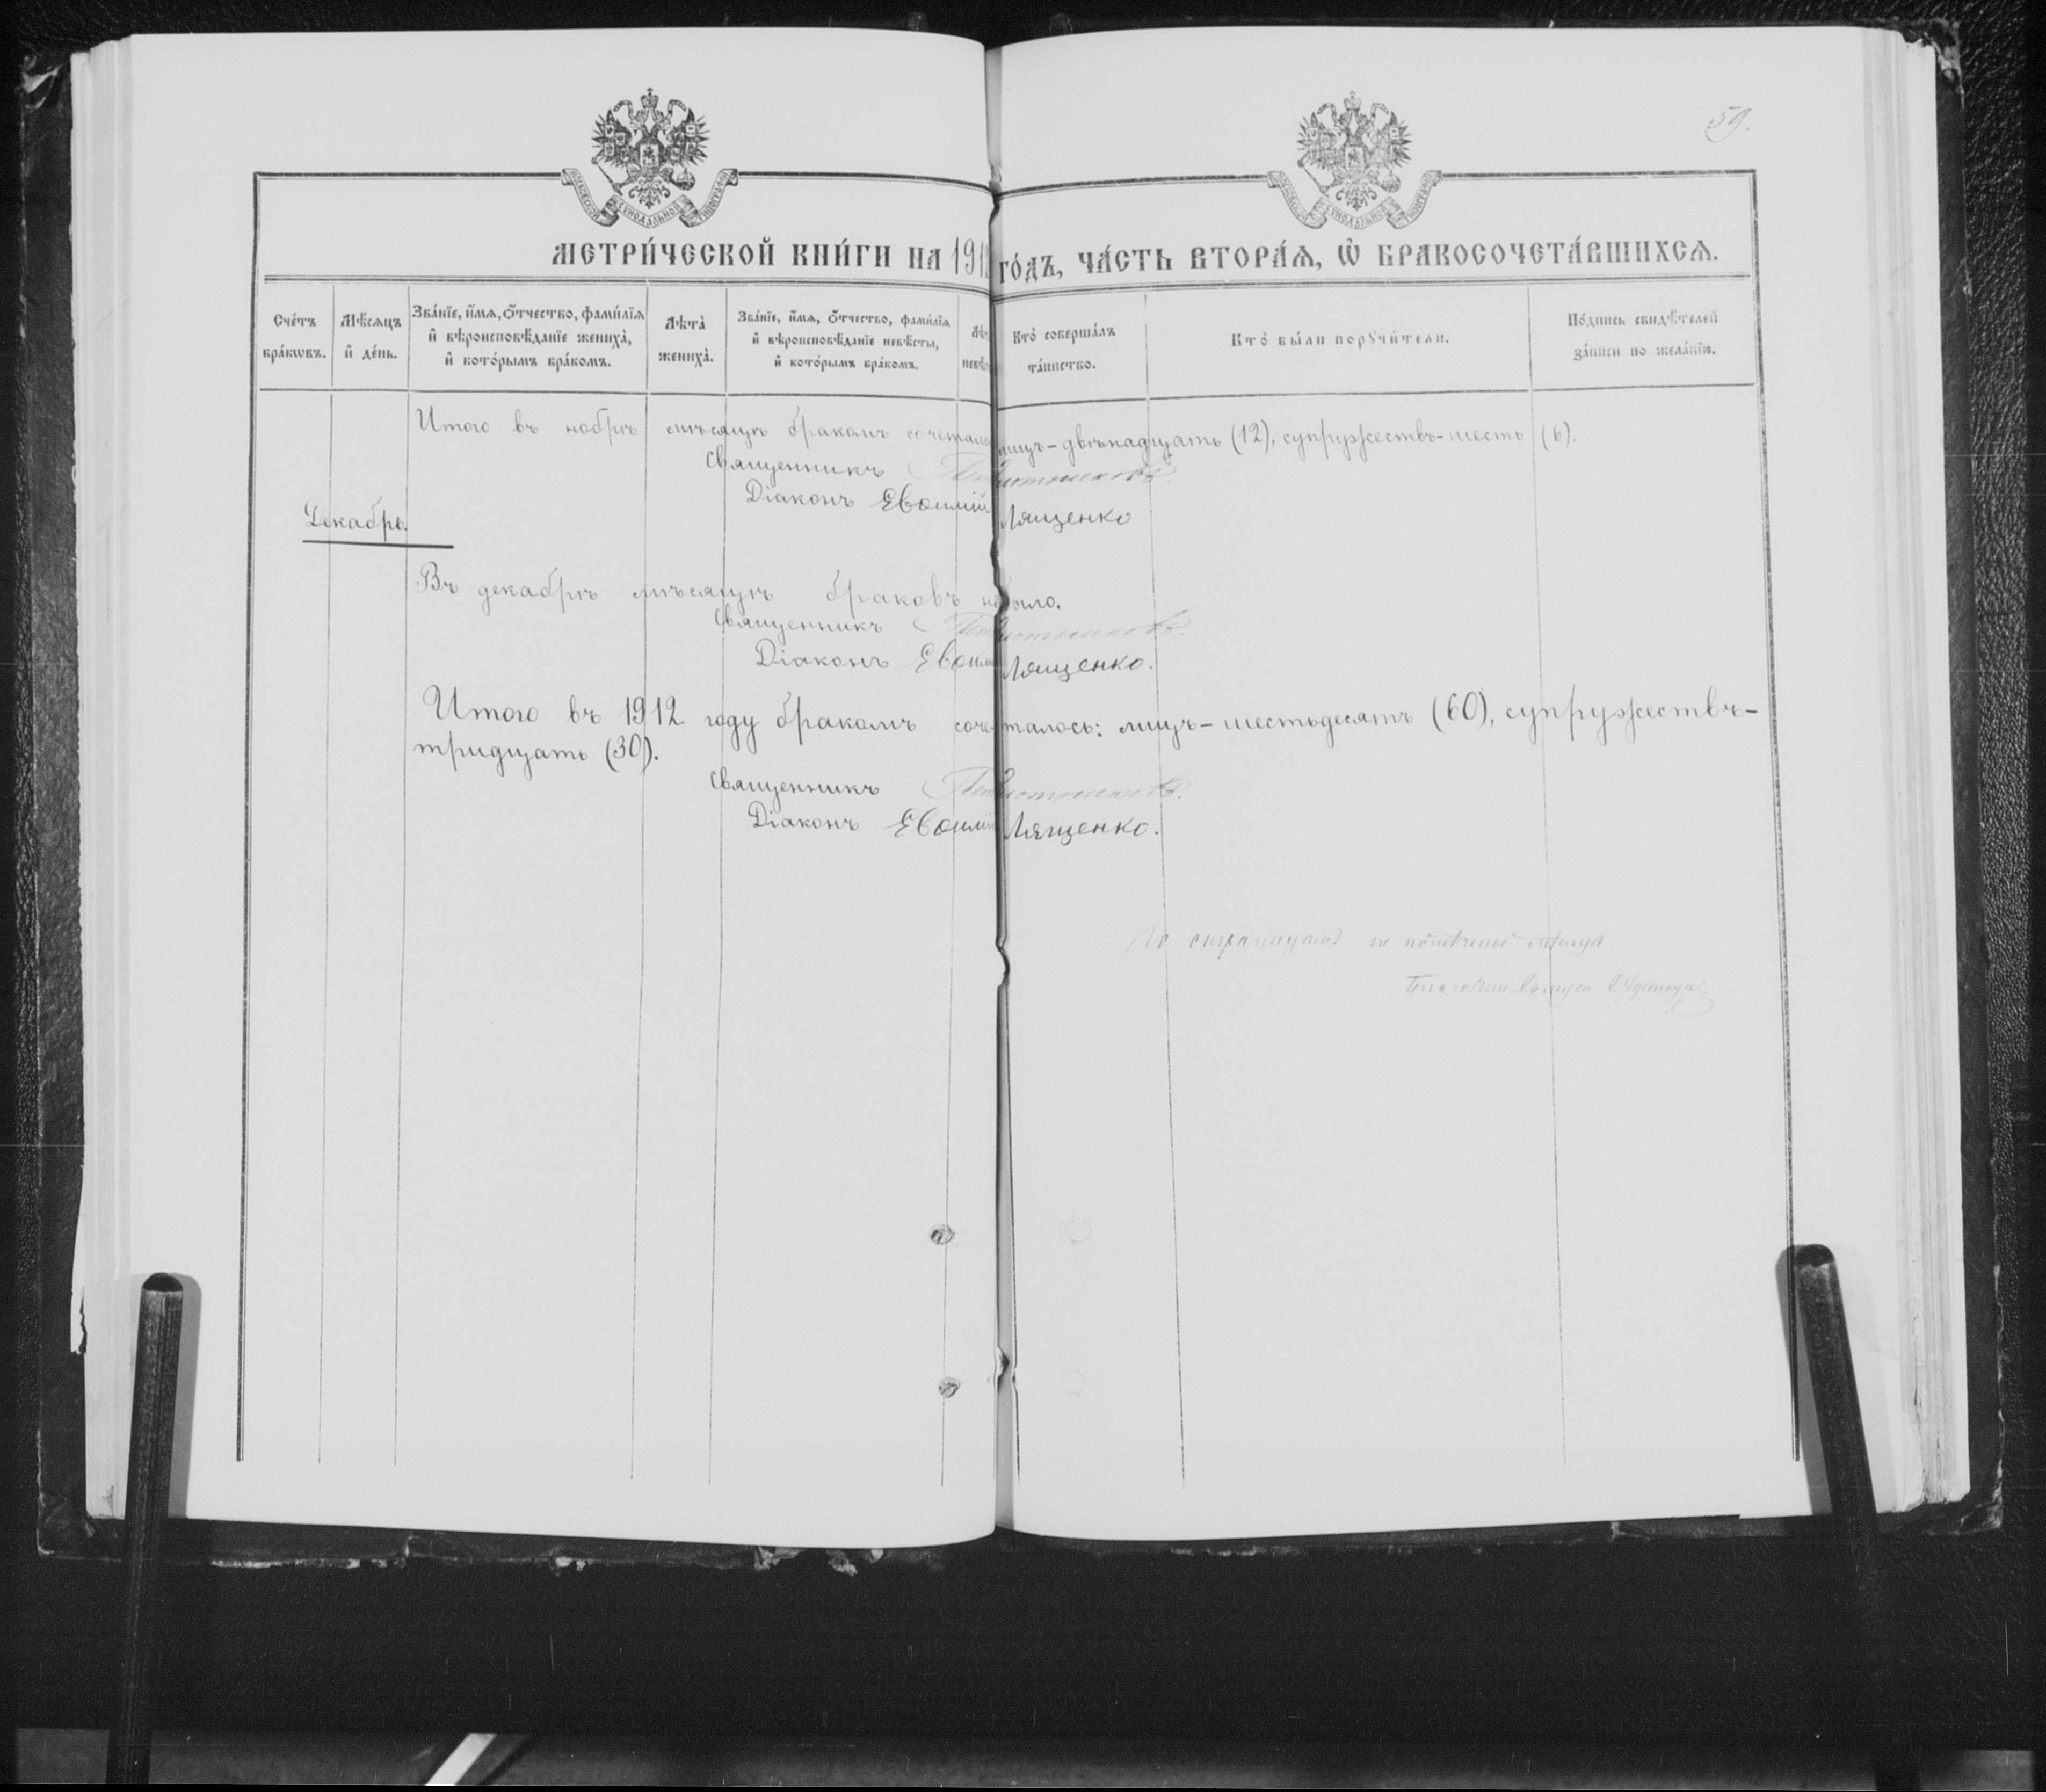 59.
МОСКОВСКОЙ СѴНОДАЛЬНОЙ ТИПОГРАФІИ
МОСКОВСКОЙ СѴНОДАЛЬНОЙ ТИПОГРАФІИ
МЕТРИ́ЧЕСКОЙ КНИ́ГИ НА 1912 ГО́ДЪ, ЧА́СТЬ ВТОРА́Ѧ, Ѡ҆ БРАКОСОЧЕТА́ВШИХСѦ.
Сче́тъ
бра́кѡвъ.
Мѣ́сѧцъ
и҆ де́нь.
Зва́нїе, и҆́мѧ, ѻ҆́тчество, фами́лїѧ
и҆ вѣроисповѣ́данїе жениха̀,
и҆ кото́рымъ бра́комъ.
Лѣта̀
жениха̀.
Зва́нїе, и҆́мѧ, ѻ҆́тчество, фами́лїѧ
и҆ вѣроисповѣ́данїе невѣ́сты,
и҆ кото́рымъ бра́комъ.
Лѣт
невѣс
Кто̀ соверша́лъ
та́инство.
Кто̀ бы́ли порꙋчи́тели.
По́дпись свидѣ́телей
за́писи по жела́нїю.
Итого въ ноябрѣ мѣсяцѣ бракомъ сочетал лицъ - двѣнадцать (12), супружествъ - шесть (6).
Священникъ
Діаконъ Евѳимій Лященко
Декабрь.
Въ декабрѣ мѣсяцѣ браковъ небыло.
Священникъ
Діаконъ Евѳимій Лященко.
Итого въ 1912 году бракомъ сочеталось: лицъ - шестьдесятъ (60), супружествъ -
тридцать (30).
Священникъ
Діаконъ Евѳимій Лященко.
По страницамъ не помѣчены